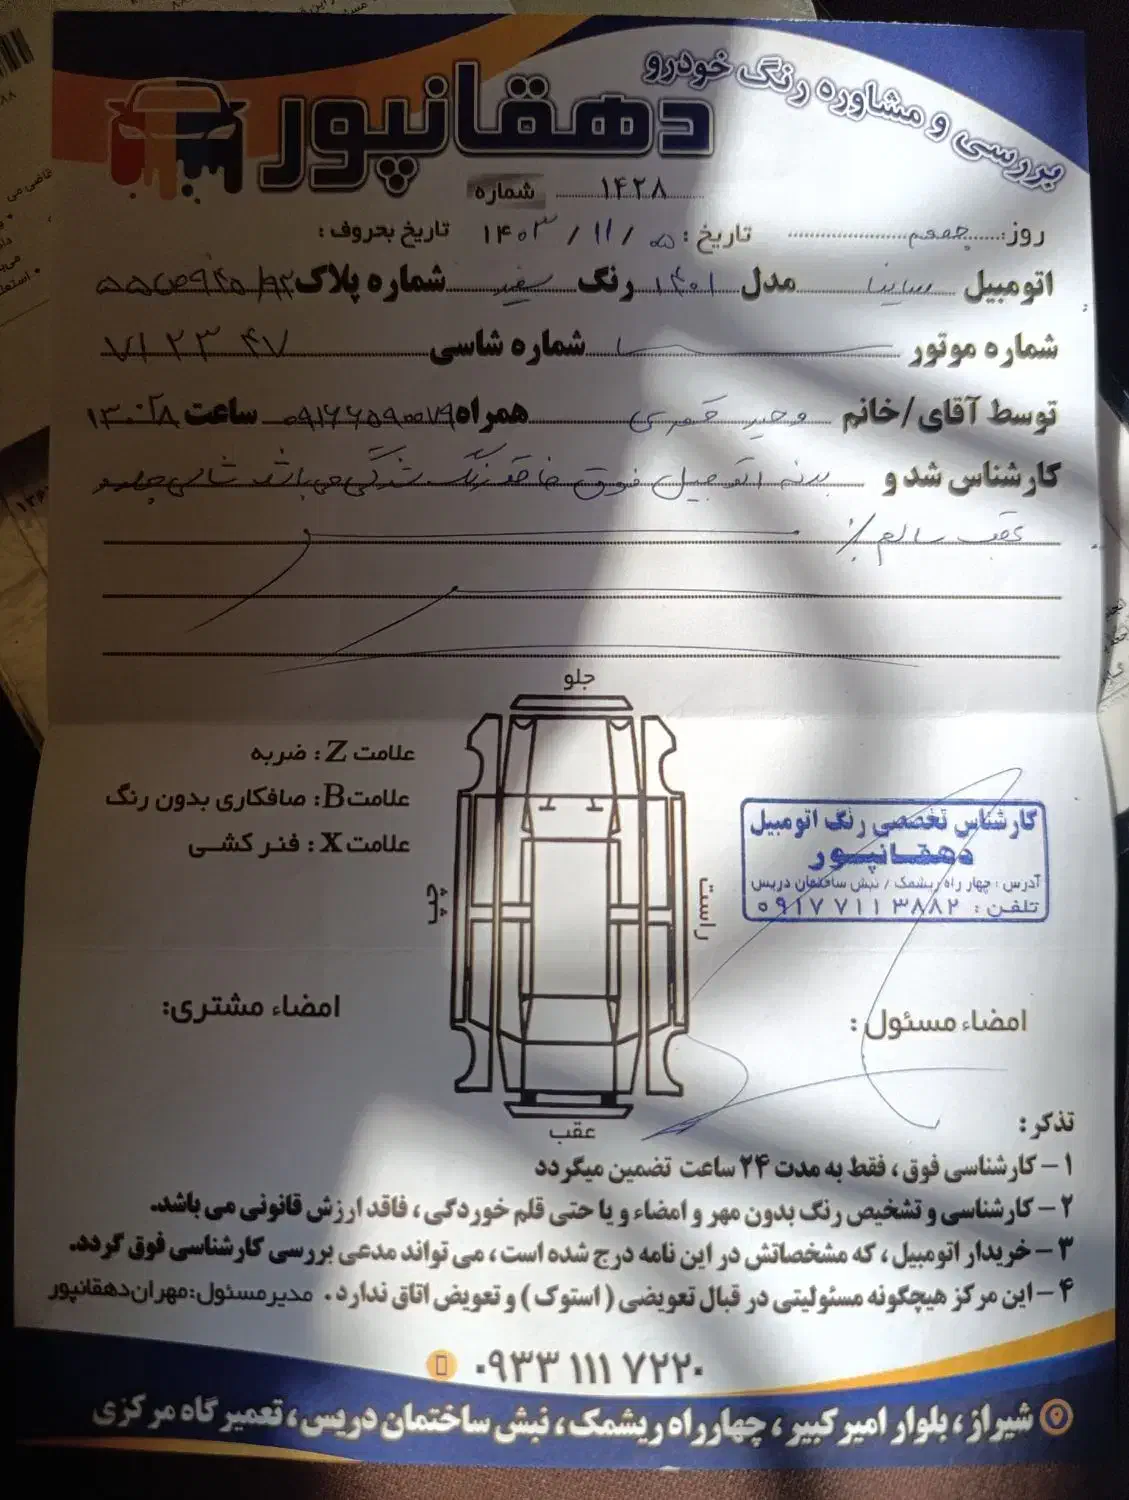 بررسی و مشاوره رنگ خودرو
دهقانپور
شماره ۱۴۲۸
روز: جمعه تاریخ: ۰۵ / ۱۱ / ۱۴۰۳ تاریخ بحروف:
اتومبیل ساینا مدل ۱۴۰۱ رنگ سفید شماره پلاک
شماره موتور شماره شاسی ۷۱۲۳۴۷
توسط آقای/خانم وحید همراه ۰۹۱۶۶۵۹۰۰۷۹ ساعت
کارشناس شد و بدنه اتومبیل فوق فاقد رنگ شدگی می باشد شاسی جلو و
عقب سالم
جلو
علامت Z: ضربه
علامت B: صافکاری بدون رنگ
علامت X: فنر کشی
چپ
راست
عقب
کارشناس تخصصی رنگ اتومبیل
دهقانپور
آدرس: چهار راه ریشمک / نبش ساختمان دریس
تلفن: ۰۹۱۷۷۱۱۳۸۸۲
امضاء مسئول:
امضاء مشتری:
تذکر:
۱- کارشناسی فوق، فقط به مدت ۲۴ ساعت تضمین میگردد
۲- کارشناسی و تشخیص رنگ بدون مهر و امضاء و یا حتی قلم خوردگی، فاقد ارزش قانونی می باشد.
۳- خریدار اتومبیل، که مشخصاتش در این نامه درج شده است، می تواند مدعی بررسی کارشناسی فوق گردد.
۴- این مرکز هیچگونه مسئولیتی در قبال تعویضی (استوک) و تعویض اتاق ندارد. مدیر مسئول: مهران دهقانپور
۰۹۳۳ ۱۱۱ ۷۲۲۰
شیراز، بلوار امیرکبیر، چهارراه ریشمک، نبش ساختمان دریس، تعمیرگاه مرکزی